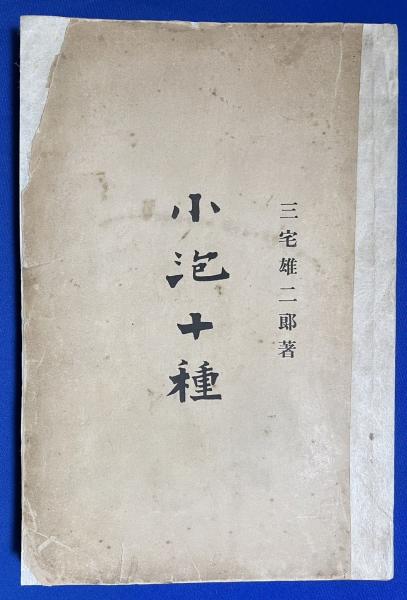 三宅雄二郎著
小泡十種